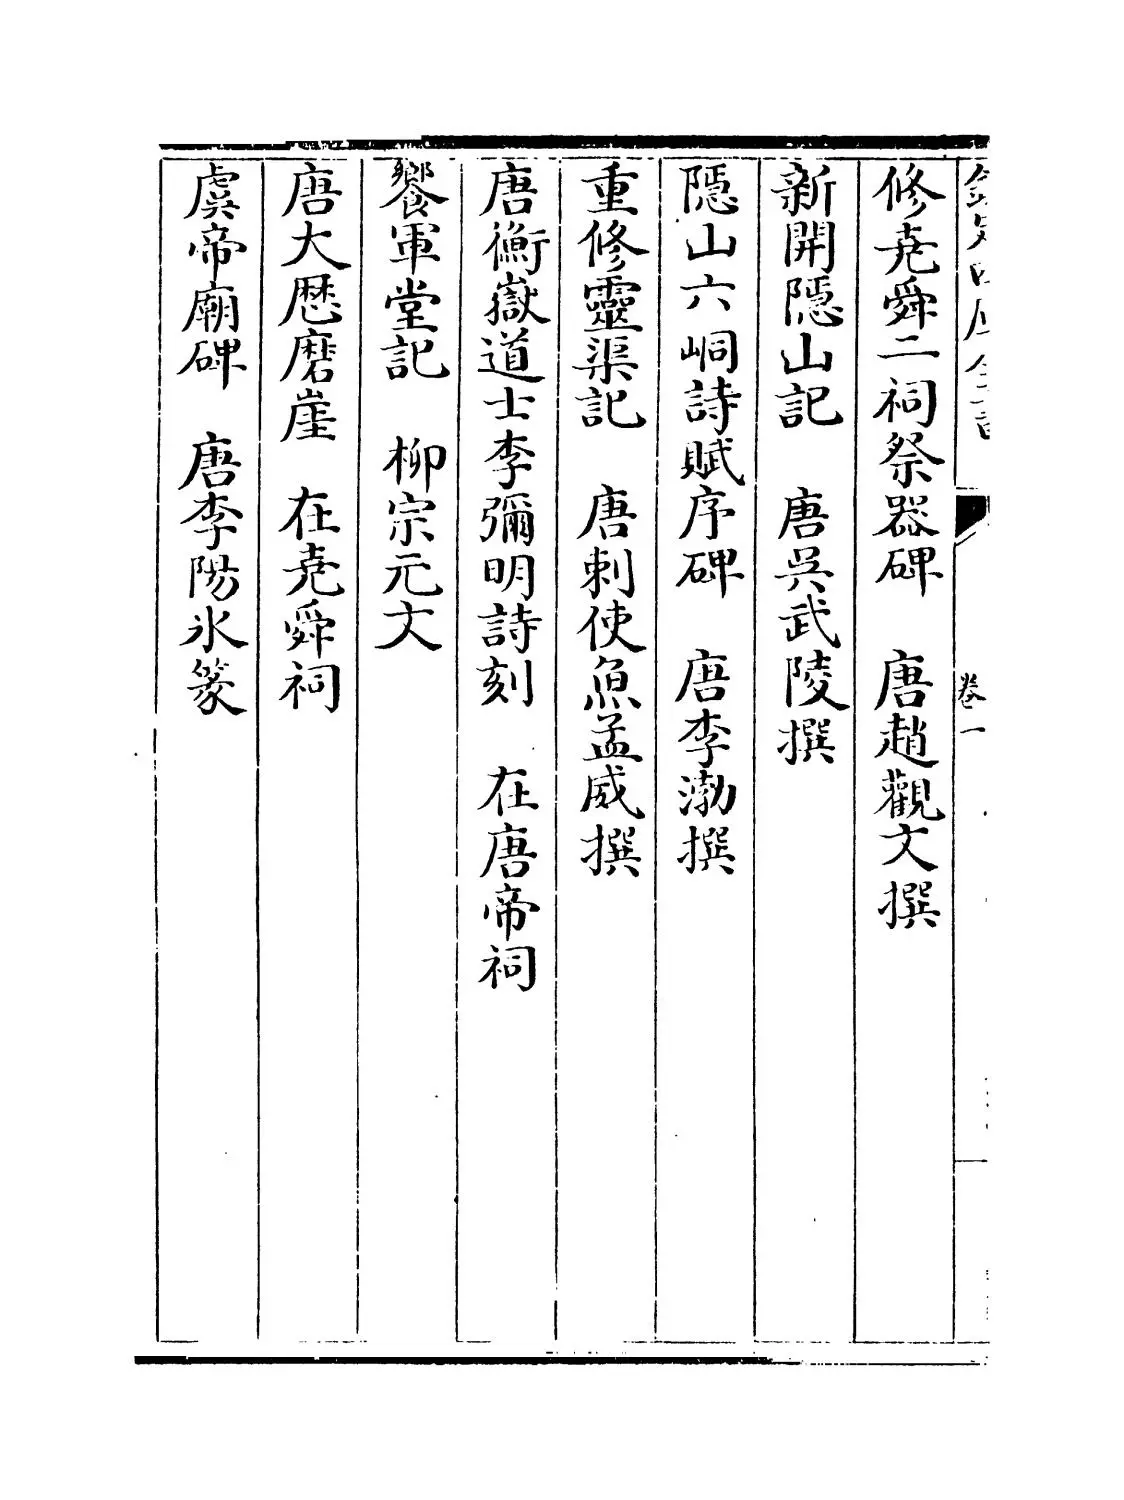 欽定四庫全書
卷一
修堯舜二祠祭器碑　唐趙觀文撰
新開隱山記　唐吳武陵撰
隱山六峒詩賦序碑　唐李渤撰
重修靈渠記　唐刺使魚孟威撰
唐衡嶽道士李彌明詩刻　在唐帝祠
饗軍堂記　柳宗元文
唐大厯磨崖　在堯舜祠
虞帝廟碑　唐李陽氷篆